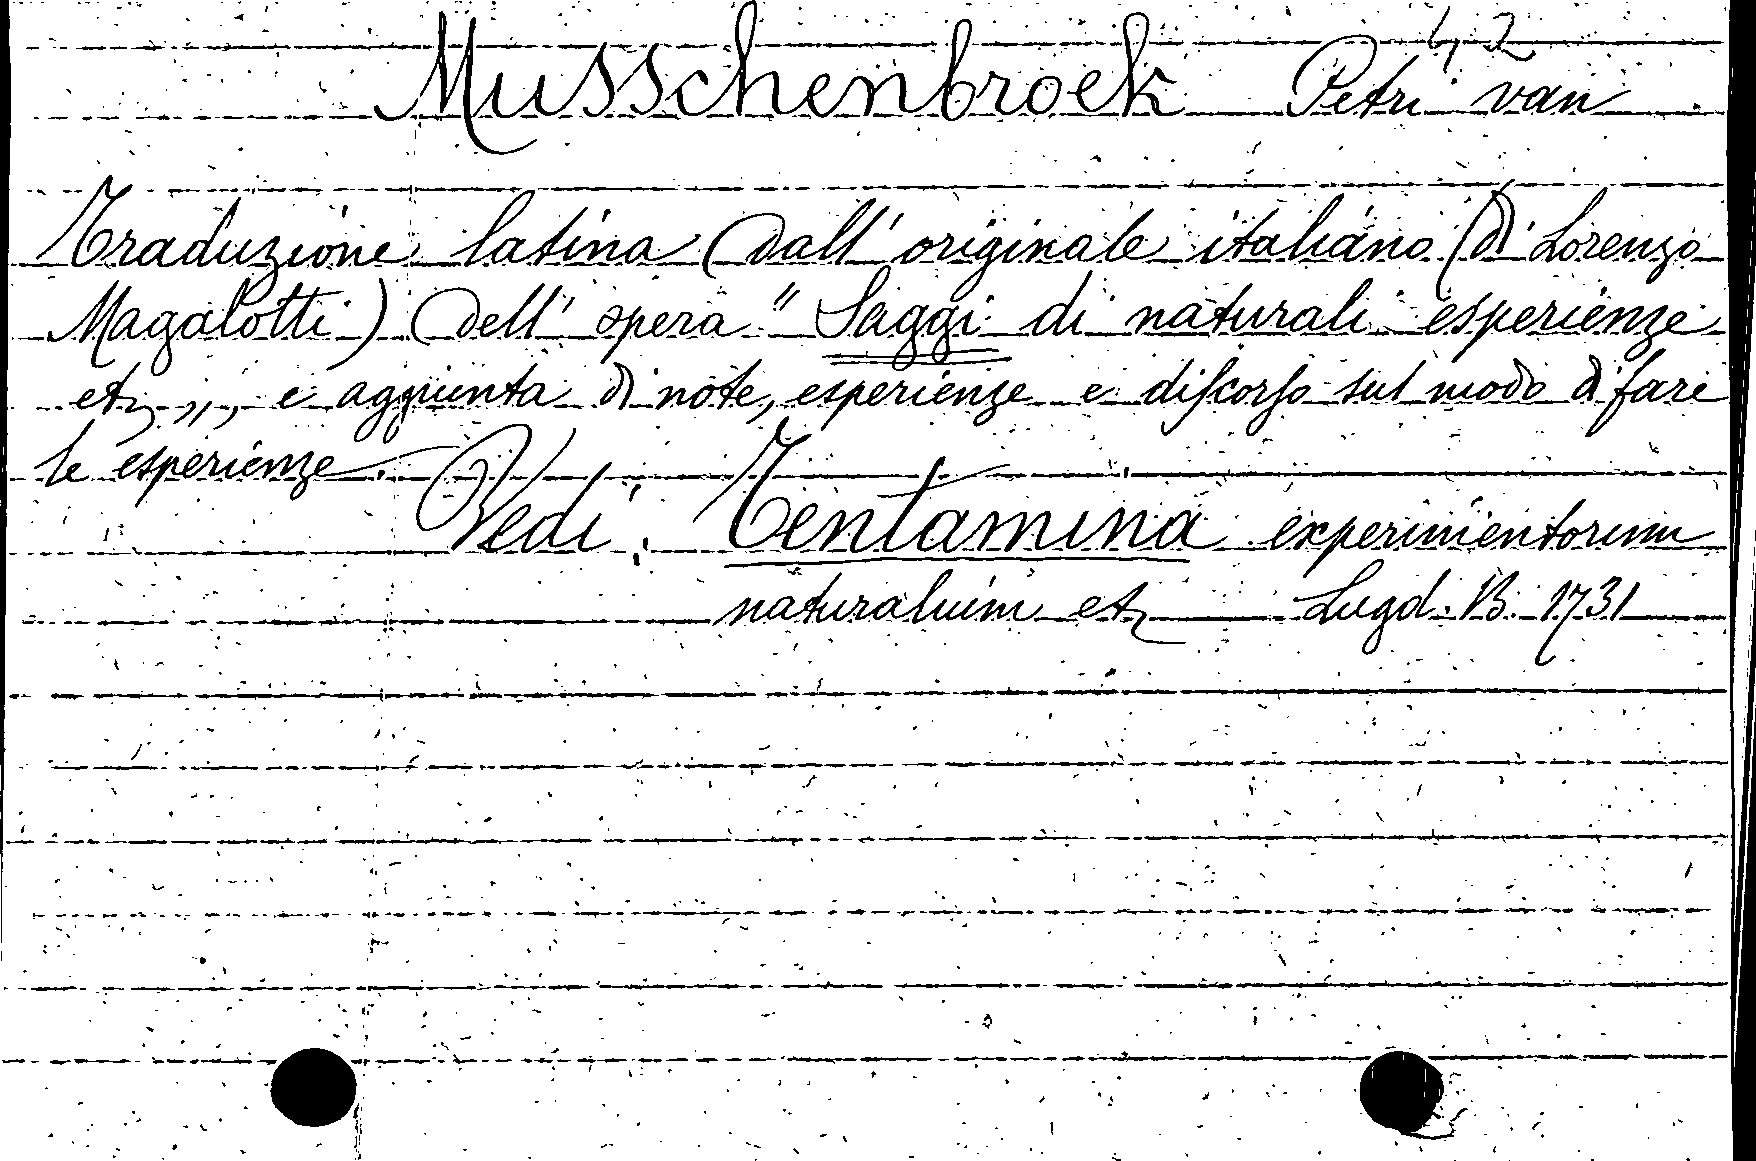 42
Musschenbroek Petri van
Traduzione latina (dall' originale italiano (di Lorenzo
Magalotti) dell' opera " Saggi di naturali esperienze
etz ,, , e aggiunta di note, esperienze e discorso sul modo di fare
le esperienze. Vedi: Tentamina experimentorum
naturalium etz Lugd. B. 1731